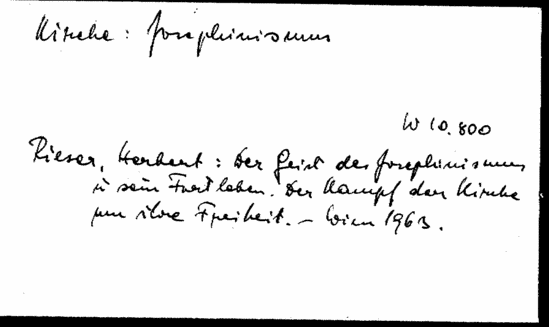 Kirche: Josephinismus
W 10.800
Rieser, Herbert: Der Geist des Josephinismus
u sein Fortleben. Der Kampf der Kirche
um ihre Freiheit. - Wien 1963.